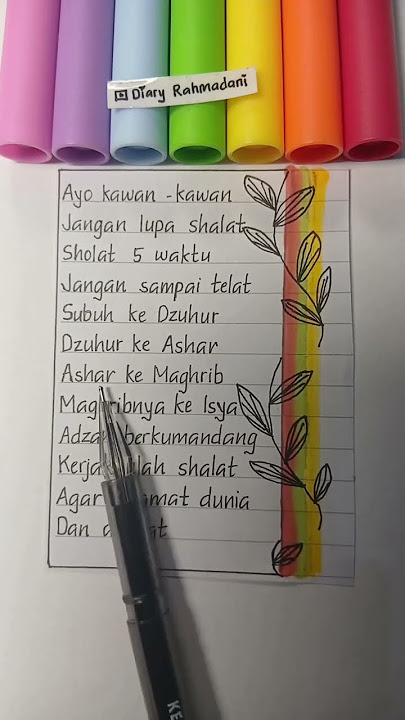 Diary Rahmadani
Ayo kawan -kawan
Jangan lupa shalat
Sholat 5 waktu
Jangan sampai telat
Subuh ke Dzuhur
Dzuhur ke Ashar
Ashar ke Maghrib
Maghribnya ke Isya
berkumandang
shalat
Agar dunia
Dan
KE